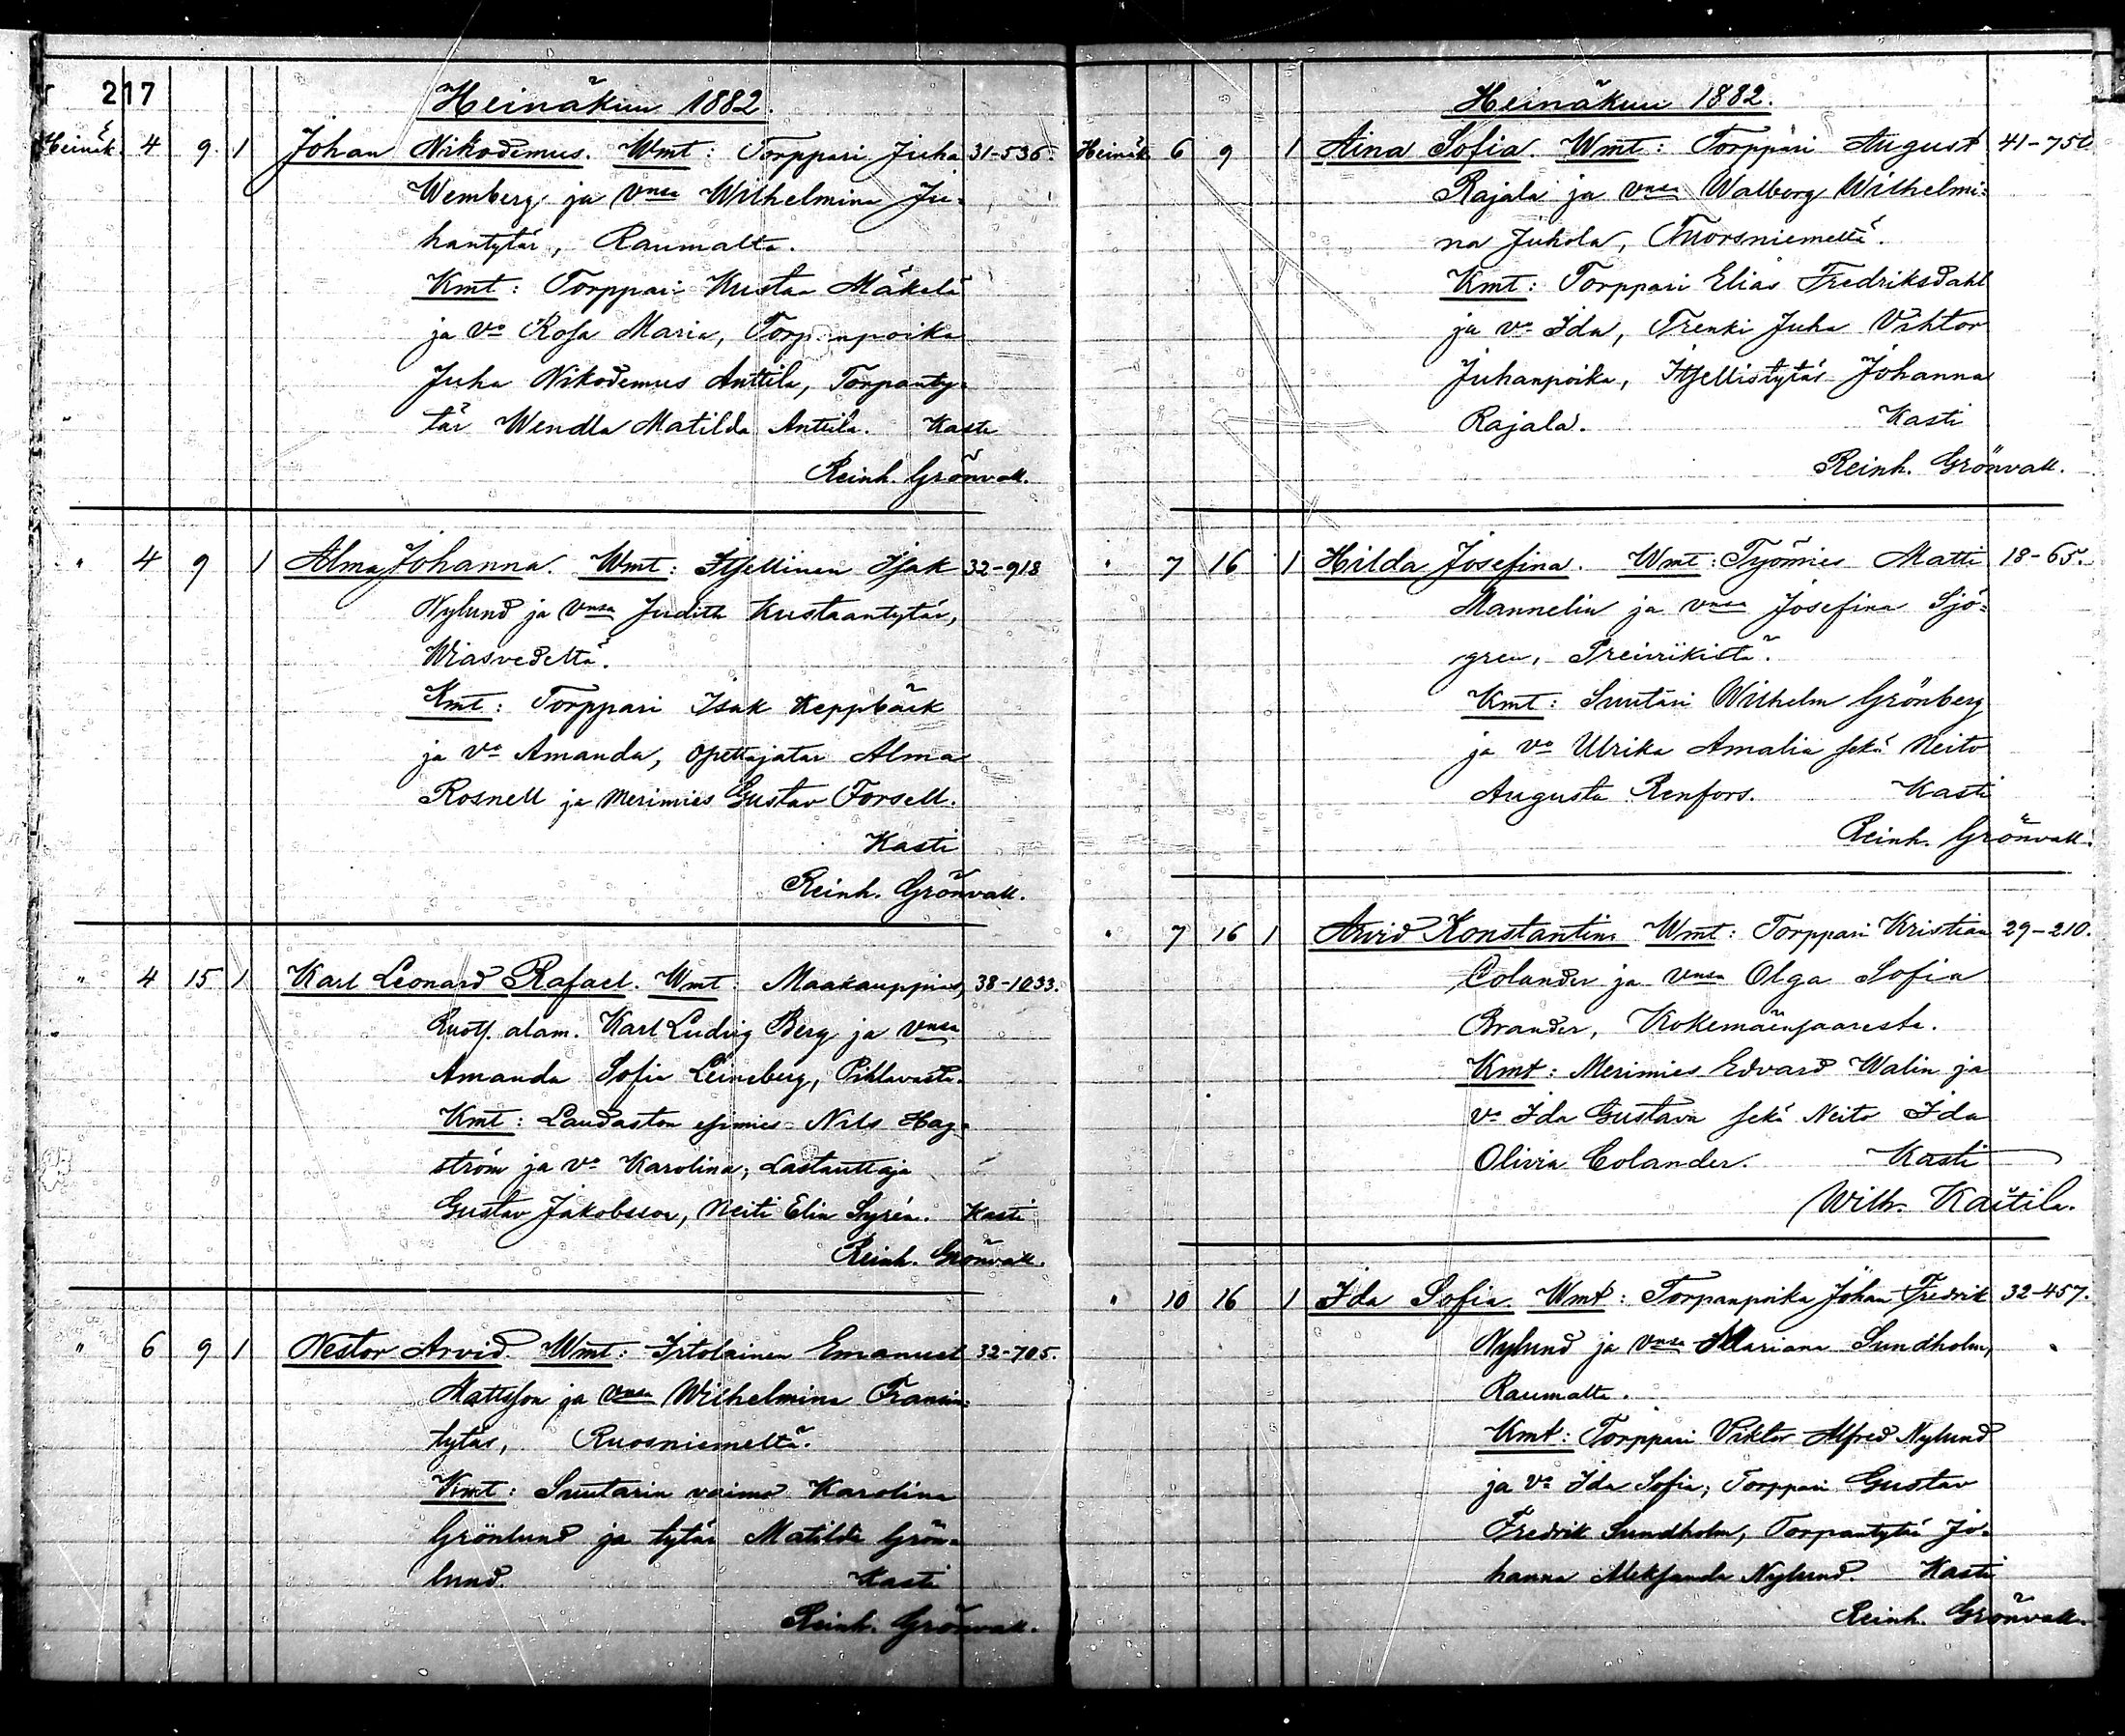 217
Heinäkuu 1882.
Heinäk. 4 9 1 Johan Nikodemus. Wmt: Torppari Juha 31-536.
Wemberg ja Vnsa Wilhelmina Ju-
hantytär, Raumalta.
Kmt: Torppari Kustaa Mäkelä
ja Vo Rosa Maria, Torpanpoika
Juha Nikodemus Anttila, Torpanty-
tär Wendla Matilda Anttila. Kasti
Reinh. Grönvall.
" 4 9 1 Alma Johanna. Wmt: Itsellinen Isak 32-918
Nylund ja Vnsa Judith Kustaantytär,
Wiasvedeltä.
Kmt: Torppari Isak Keppbäck
ja Vo Amanda, opettajatar Alma
Rosnell ja Merimies Gustav Forsell.
Kasti
Reinh. Grönvall.
" 4 15 1 Karl Leonard Rafael. Wmt: Maakauppias, 38-1033.
alam. Karl Ludvig Berg ja Vnsa
Amanda Sofia Leineberg, Pihlavasta.
Kmt: Laudaston esimies Nils Hag-
ström ja Vo Karolina, Lastauttaja
Gustav Jakobsson, Neiti Elin Syrén. Kasti
Reinh. Grönvall.
" 6 9 1 Nestor Arvid. Wmt: Irtolainen Emanuel 32-705.
Mattsson ja Vnsa Wilhelmina
tytär, Ruosniemeltä.
Kmt: Suutarin vaimo Karolina
Grönlund ja tytär Matilda Grön-
lund. Kasti
Reinh. Grönvall.
Heinäkuu 1882.
Heinäk. 6 9 1 Aina Sofia. Wmt: Torppari August 41-750
Rajala ja Vnsa Walborg Wilhelmi-
na Juhola, Tuorsniemeltä.
Kmt: Torppari Elias Fredriksdahl
ja Vo Ida, Trenki Juha Viktor
Juhanpoika, Itsellistytär Johanna
Rajala. Kasti
Reinh. Grönvall.
" 7 16 1 Hilda Josefina. Wmt: Työmies Matti 18-65.
Mannelin ja Vnsa Josefina Sjö-
gren, Preiviikistä.
Kmt: Suutari Wilhelm Grönberg
ja Vo Ulrika Amalia sekä Neito
Augusta Renfors. Kasti
Reinh. Grönvall.
" 7 16 1 Arvid Konstantin. Wmt: Torppari Kristian 29-210.
Colander ja Vnsa Olga Sofia
Brander, Kokemäensaaresta.
Kmt: Merimies Edvard Walin ja
Vo Ida Gustava sekä Neito Ida
Olivia Colander. Kasti
Wilh. Kaitila.
" 10 16 1 Ida Sofia. Wmt: Torpanpoika Johan Fredrik 32-457.
Nylund ja Vnsa Mariana Sundholm,
Raumalta.
Kmt: Torppari Viktor Alfred Nylund
ja Vo Ida Sofia, Torppari Gustav
Fredrik Sundholm, Torpantytär Jo-
hanna Aleksandra Nylund. Kasti
Reinh. Grönvall.